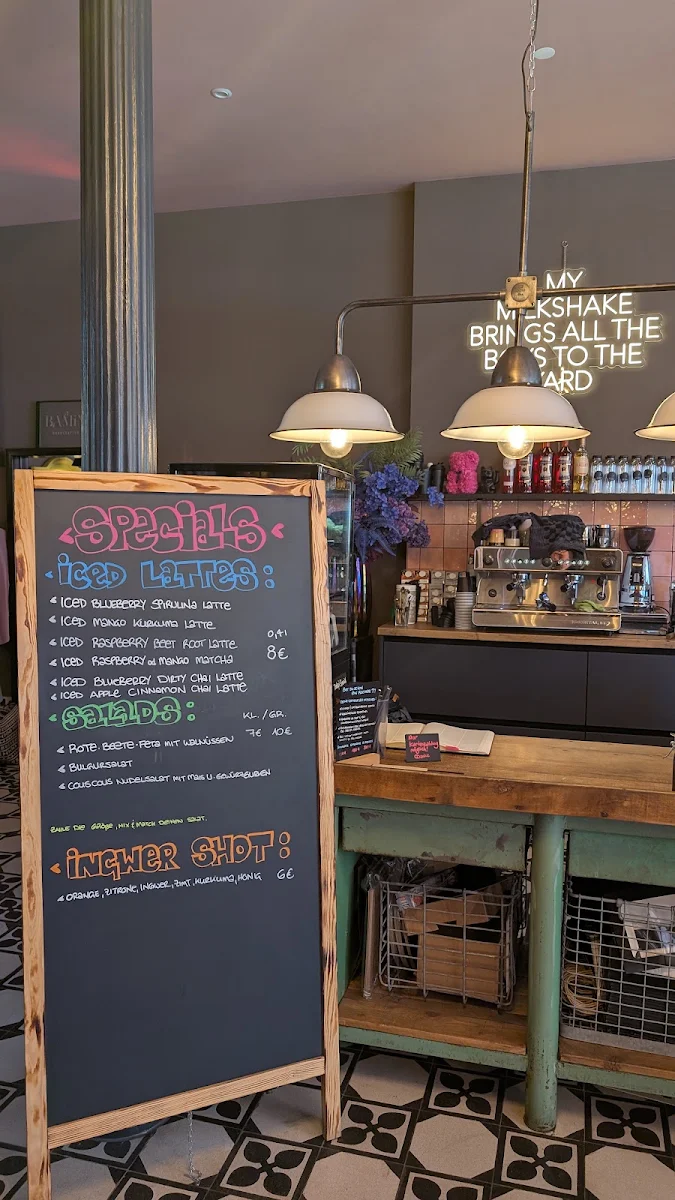 MY
MILKSHAKE
BRINGS ALL THE
BOYS TO THE
YARD
SPECIALS
ICED LATTES:
ICED BLUEBERRY SPIRULINA LATTE
ICED MANGO KURKUMA LATTE
ICED RASPBERRY BEET ROOT LATTE 0,4l
ICED RASPBERRY od MANGO MATCHA 8€
ICED BLUEBERRY DIRTY CHAI LATTE
ICED APPLE CINNAMON CHAI LATTE
SALADS: KL. / GR.
ROTE-BEETE-FETA MIT WALNÜSSEN 7€ 10€
BULGURSALAT
COUSCOUS NUDELSALAT MIT MAIS U. GEWÜRZGURKEN
WÄHLE DIE GRÖßE, MIX & MATCH DEINEN SALAT.
INGWER SHOT:
ORANGE, ZITRONE, INGWER, ZIMT, KURKUMA, HONIG 6€